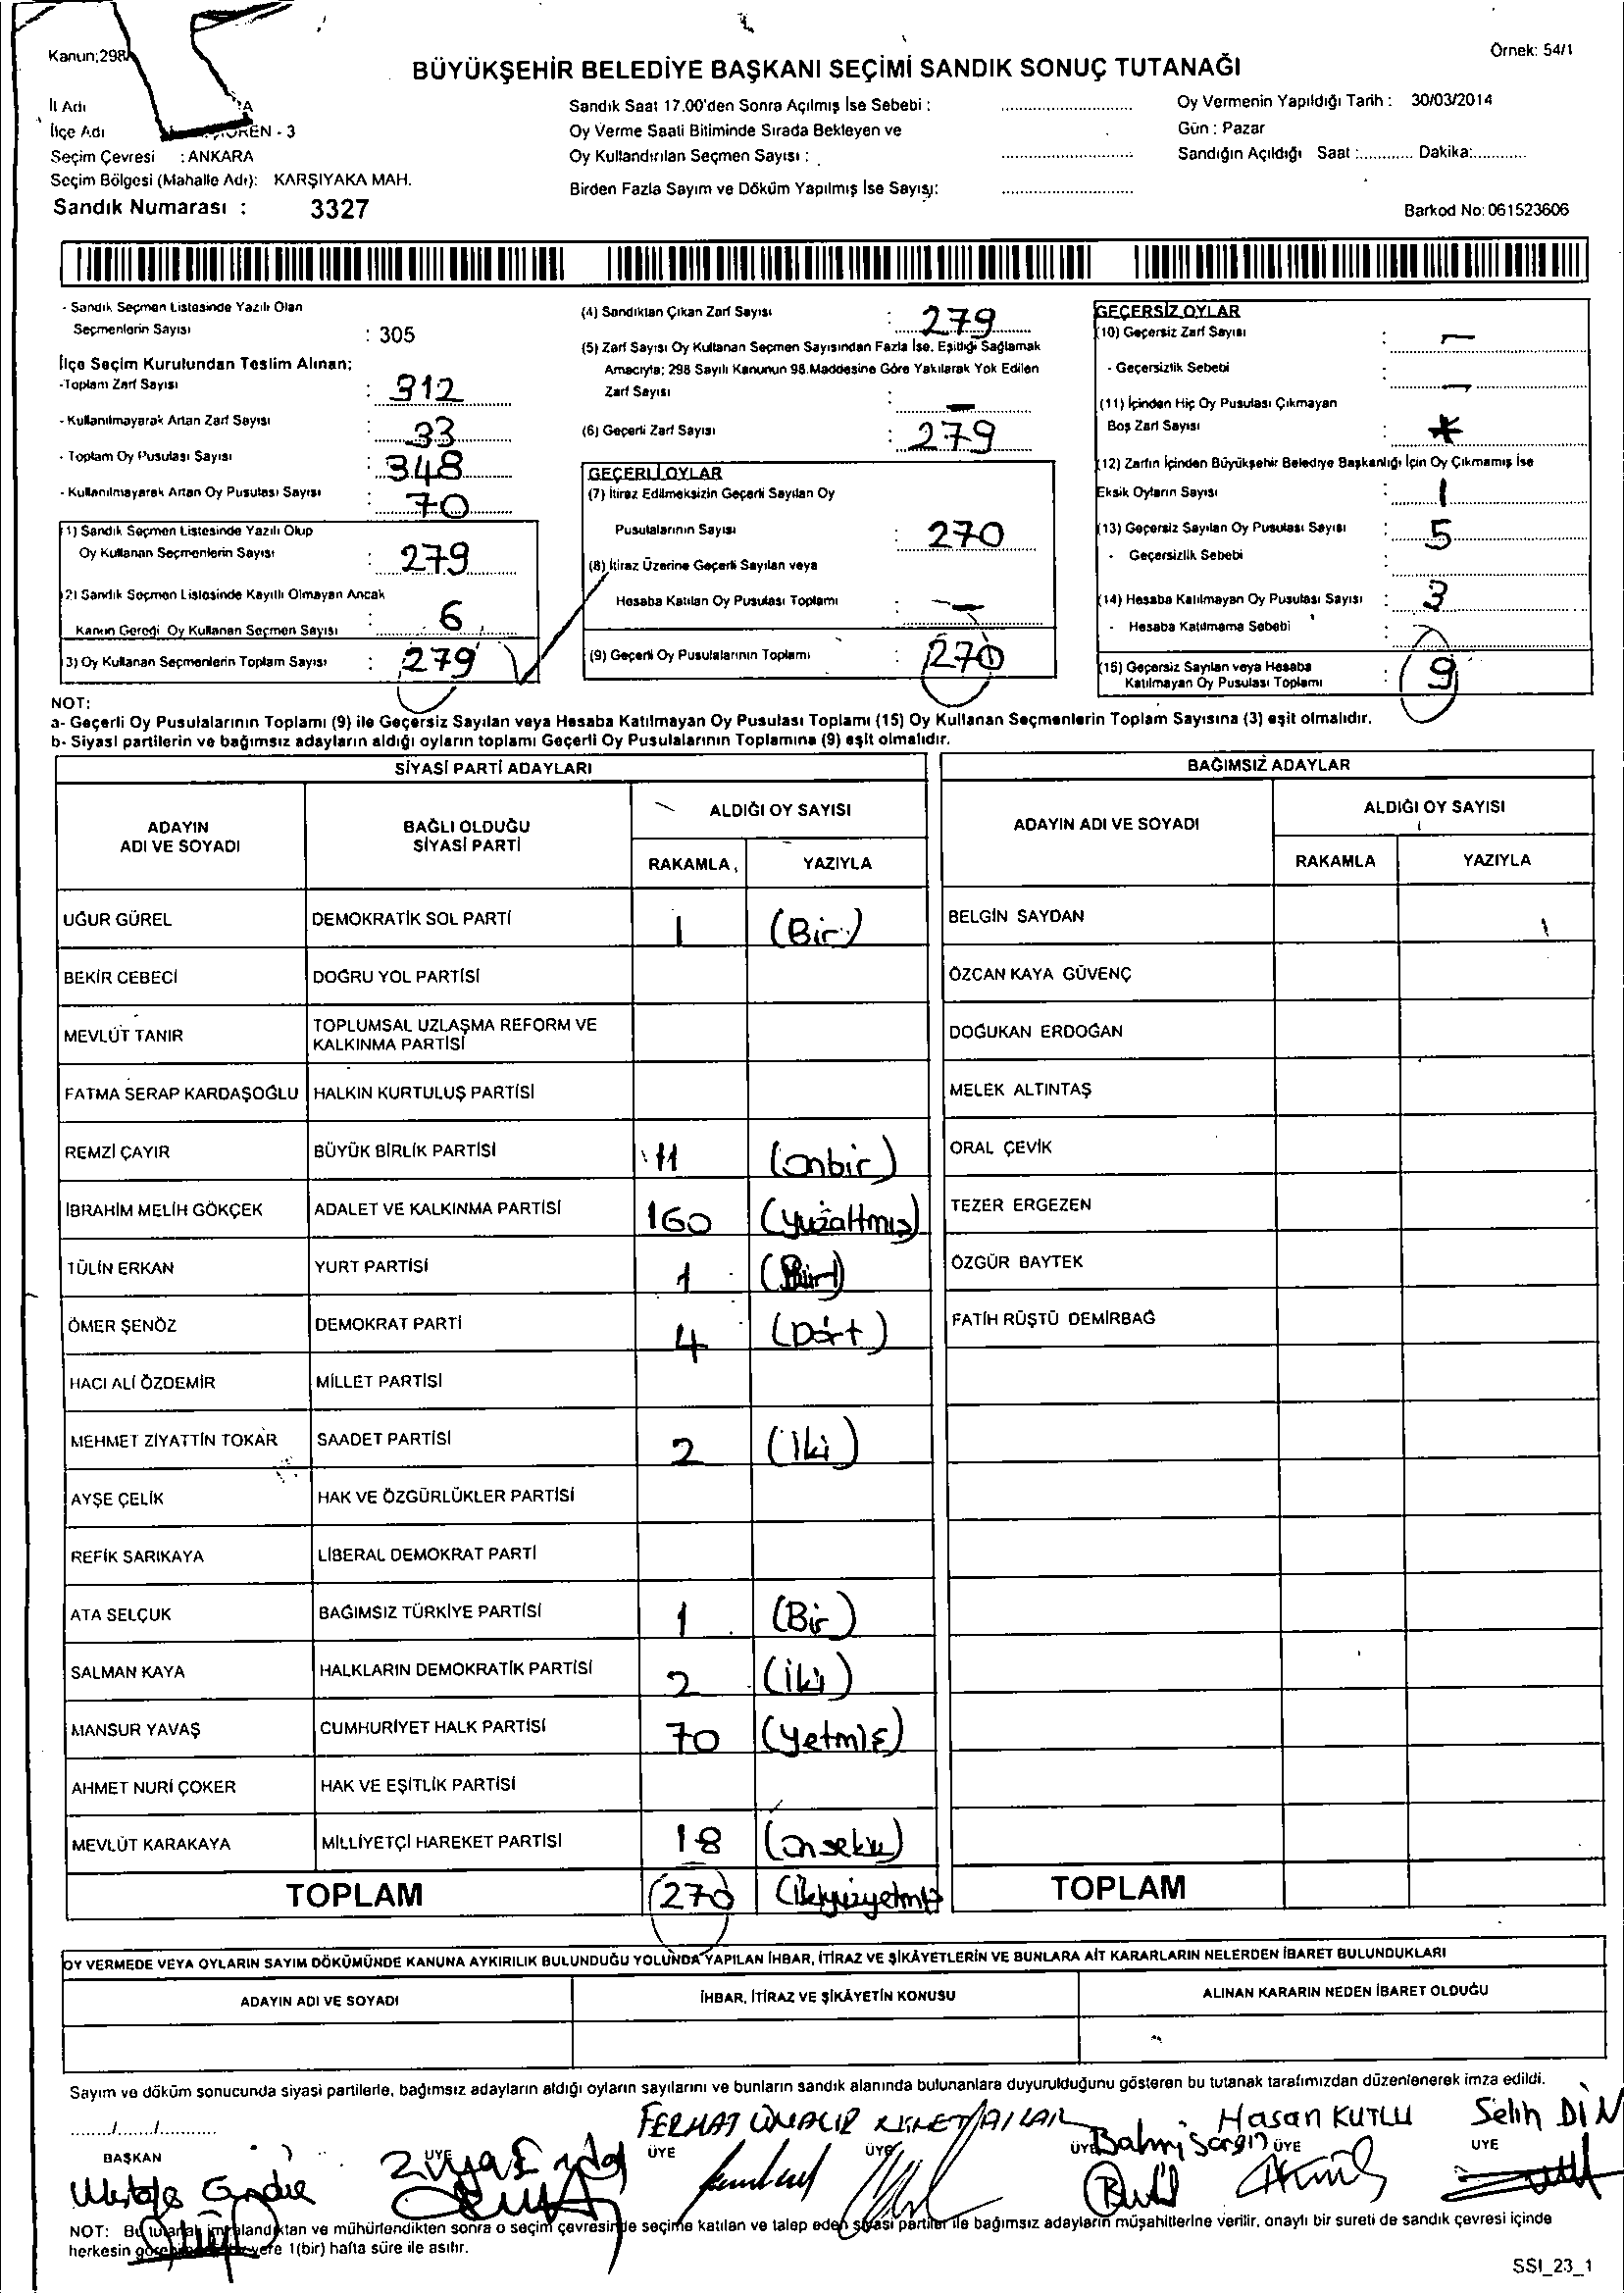 Kanun;298
Örnek: 54/1
BÜYÜKŞEHİR BELEDİYE BAŞKANI SEÇİMİ SANDIK SONUÇ TUTANAĞI
İl Adı
İlçe Adı - 3
Seçim Çevresi : ANKARA
Seçim Bölgesi (Mahalle Adı): KARŞIYAKA MAH.
Sandık Numarası : 3327
Sandık Saat 17.00'den Sonra Açılmış İse Sebebi :
Oy Verme Saati Bitiminde Sırada Bekleyen ve
Oy Kullandırılan Seçmen Sayısı :
Birden Fazla Sayım ve Döküm Yapılmış İse Sayısı:
Oy Vermenin Yapıldığı Tarih : 30/03/2014
Gün : Pazar
Sandığın Açıldığı Saat :............ Dakika:............
Barkod No: 061523606
- Sandık Seçmen Listesinde Yazılı Olan
Seçmenlerin Sayısı : 305
İlçe Seçim Kurulundan Teslim Alınan;
-Toplam Zarf Sayısı : 312
- Kullanılmayarak Artan Zarf Sayısı : 33
- Toplam Oy Pusulası Sayısı : 348
- Kullanılmayarak Artan Oy Pusulası Sayısı : 70
1) Sandık Seçmen Listesinde Yazılı Olup
Oy Kullanan Seçmenlerin Sayısı : 279
2) Sandık Seçmen Listesinde Kayıtlı Olmayan Ancak
Kanun Gereği Oy Kullanan Seçmen Sayısı : 6
3) Oy Kullanan Seçmenlerin Toplam Sayısı : 279
(4) Sandıktan Çıkan Zarf Sayısı : 279
(5) Zarf Sayısı Oy Kullanan Seçmen Sayısından Fazla İse, Eşitliği Sağlamak
Amacıyla; 298 Sayılı Kanunun 98.Maddesine Göre Yakılarak Yok Edilen
Zarf Sayısı : -
(6) Geçerli Zarf Sayısı : 279
GEÇERLİ OYLAR
(7) İtiraz Edilmeksizin Geçerli Sayılan Oy
Pusulalarının Sayısı : 270
(8) İtiraz Üzerine Geçerli Sayılan veya
Hesaba Katılan Oy Pusulası Toplamı : -
(9) Geçerli Oy Pusulalarının Toplamı : 270
GEÇERSİZ OYLAR
(10) Geçersiz Zarf Sayısı : -
- Geçersizlik Sebebi : -
(11) İçinden Hiç Oy Pusulası Çıkmayan
Boş Zarf Sayısı :
(12) Zarfın İçinden Büyükşehir Belediye Başkanlığı İçin Oy Çıkmamış İse
Eksik Oyların Sayısı : 1
(13) Geçersiz Sayılan Oy Pusulası Sayısı : 5
- Geçersizlik Sebebi :
(14) Hesaba Katılmayan Oy Pusulası Sayısı : 3
- Hesaba Katılmama Sebebi :
(15) Geçersiz Sayılan veya Hesaba
Katılmayan Oy Pusulası Toplamı : 9
NOT:
a- Geçerli Oy Pusulalarının Toplamı (9) ile Geçersiz Sayılan veya Hesaba Katılmayan Oy Pusulası Toplamı (15) Oy Kullanan Seçmenlerin Toplam Sayısına (3) eşit olmalıdır.
b- Siyasi partilerin ve bağımsız adayların aldığı oyların toplamı Geçerli Oy Pusulalarının Toplamına (9) eşit olmalıdır.
SİYASİ PARTİ ADAYLARI
ADAYIN ADI VE SOYADI
BAĞLI OLDUĞU SİYASİ PARTİ
ALDIĞI OY SAYISI
RAKAMLA YAZIYLA
UĞUR GÜREL DEMOKRATİK SOL PARTİ 1 (Bir)
BEKİR CEBECİ DOĞRU YOL PARTİSİ
MEVLÜT TANIR TOPLUMSAL UZLAŞMA REFORM VE KALKINMA PARTİSİ
FATMA SERAP KARDAŞOĞLU HALKIN KURTULUŞ PARTİSİ
REMZİ ÇAYIR BÜYÜK BİRLİK PARTİSİ 11 (onbir)
İBRAHİM MELİH GÖKÇEK ADALET VE KALKINMA PARTİSİ 160 (yüzaltmış)
TÜLİN ERKAN YURT PARTİSİ 1 (Bir)
ÖMER ŞENÖZ DEMOKRAT PARTİ 4 (Dört)
HACI ALİ ÖZDEMİR MİLLET PARTİSİ
MEHMET ZİYATTİN TOKAR SAADET PARTİSİ 2 (iki)
AYŞE ÇELİK HAK VE ÖZGÜRLÜKLER PARTİSİ
REFİK SARIKAYA LİBERAL DEMOKRAT PARTİ
ATA SELÇUK BAĞIMSIZ TÜRKİYE PARTİSİ 1 (Bir)
SALMAN KAYA HALKLARIN DEMOKRATİK PARTİSİ 2 (iki)
MANSUR YAVAŞ CUMHURİYET HALK PARTİSİ 70 (yetmiş)
AHMET NURİ ÇOKER HAK VE EŞİTLİK PARTİSİ
MEVLÜT KARAKAYA MİLLİYETÇİ HAREKET PARTİSİ 18 (onsekiz)
TOPLAM 270 (ikiyüzyetmiş)
BAĞIMSIZ ADAYLAR
ADAYIN ADI VE SOYADI
ALDIĞI OY SAYISI
RAKAMLA YAZIYLA
BELGİN SAYDAN
ÖZCAN KAYA GÜVENÇ
DOĞUKAN ERDOĞAN
MELEK ALTINTAŞ
ORAL ÇEVİK
TEZER ERGEZEN
ÖZGÜR BAYTEK
FATİH RÜŞTÜ DEMİRBAĞ
TOPLAM
OY VERMEDE VEYA OYLARIN SAYIM DÖKÜMÜNDE KANUNA AYKIRILIK BULUNDUĞU YOLUNDA YAPILAN İHBAR, İTİRAZ VE ŞİKÂYETLERİN VE BUNLARA AİT KARARLARIN NELERDEN İBARET BULUNDUKLARI
ADAYIN ADI VE SOYADI İHBAR, İTİRAZ VE ŞİKÂYETİN KONUSU ALINAN KARARIN NEDEN İBARET OLDUĞU
Sayım ve döküm sonucunda siyasi partilerle, bağımsız adayların aldığı oyların sayılarını ve bunların sandık alanında bulunanlara duyurulduğunu gösteren bu tutanak tarafımızdan düzenlenerek imza edildi.
......./......./............
FERHAT Hasan KUTLU Selih DİN
BAŞKAN ÜYE ÜYE ÜYE ÜYE ÜYE ÜYE
NOT: Bu tutanak ktan ve mühürlendikten sonra o seçim çevresinde seçime katılan ve talep eden siyasi partiler ile bağımsız adayların müşahitlerine verilir, onaylı bir sureti de sandık çevresi içinde
herkesin yere 1(bir) hafta süre ile asılır.
SSI_23_1